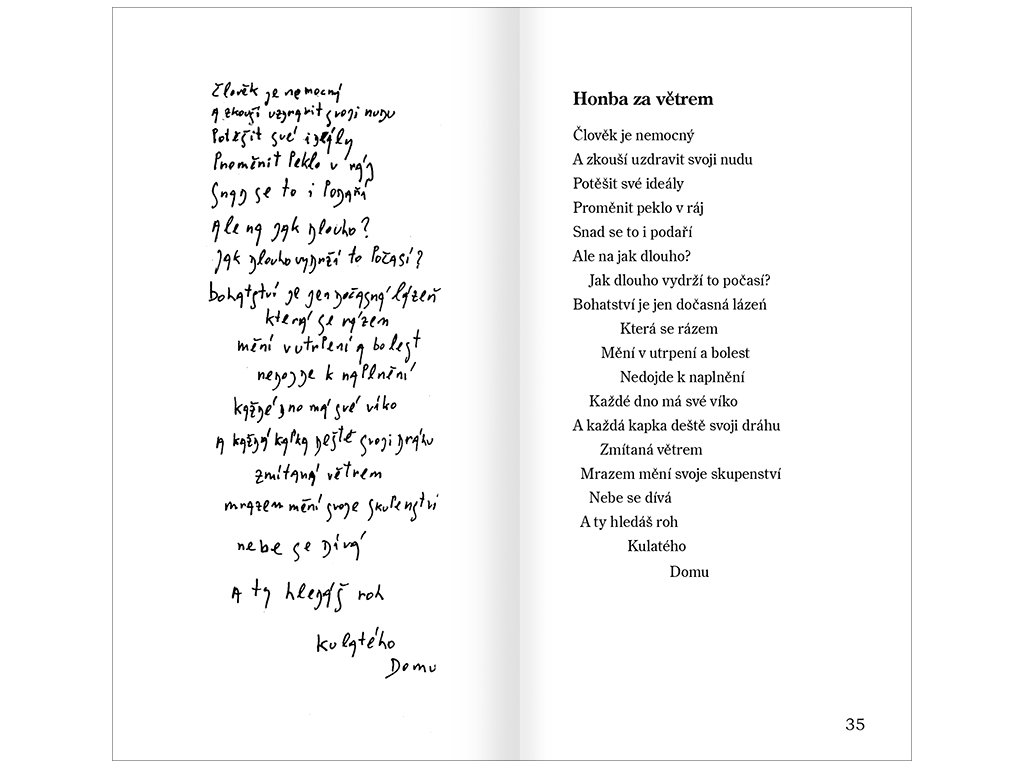 Člověk je nemocný
A zkouší uzdravit svoji nudu
Potěšit své ideály
Proměnit Peklo v ráj
Snad se to i Podaří
Ale na jak dlouho?
Jak dlouho vydrží to Počasí?
bohatství je jen dočasná lázeň
která se rázem
mění v utrpení a bolest
nedojde k naplnění
každé dno má své víko
A každá kapka deště svoji dráhu
zmítaná větrem
mrazem mění svoje skupenství
nebe se dívá
A ty hledáš roh
kulatého
Domu
Honba za větrem
Člověk je nemocný
A zkouší uzdravit svoji nudu
Potěšit své ideály
Proměnit peklo v ráj
Snad se to i podaří
Ale na jak dlouho?
Jak dlouho vydrží to počasí?
Bohatství je jen dočasná lázeń
Která se rázem
Mění v utrpení a bolest
Nedojde k naplnění
Každé dno má své víko
A každá kapka deště svoji dráhu
Zmítaná větrem
Mrazem mění svoje skupenství
Nebe se dívá
A ty hledáš roh
Kulatého
Domu
35